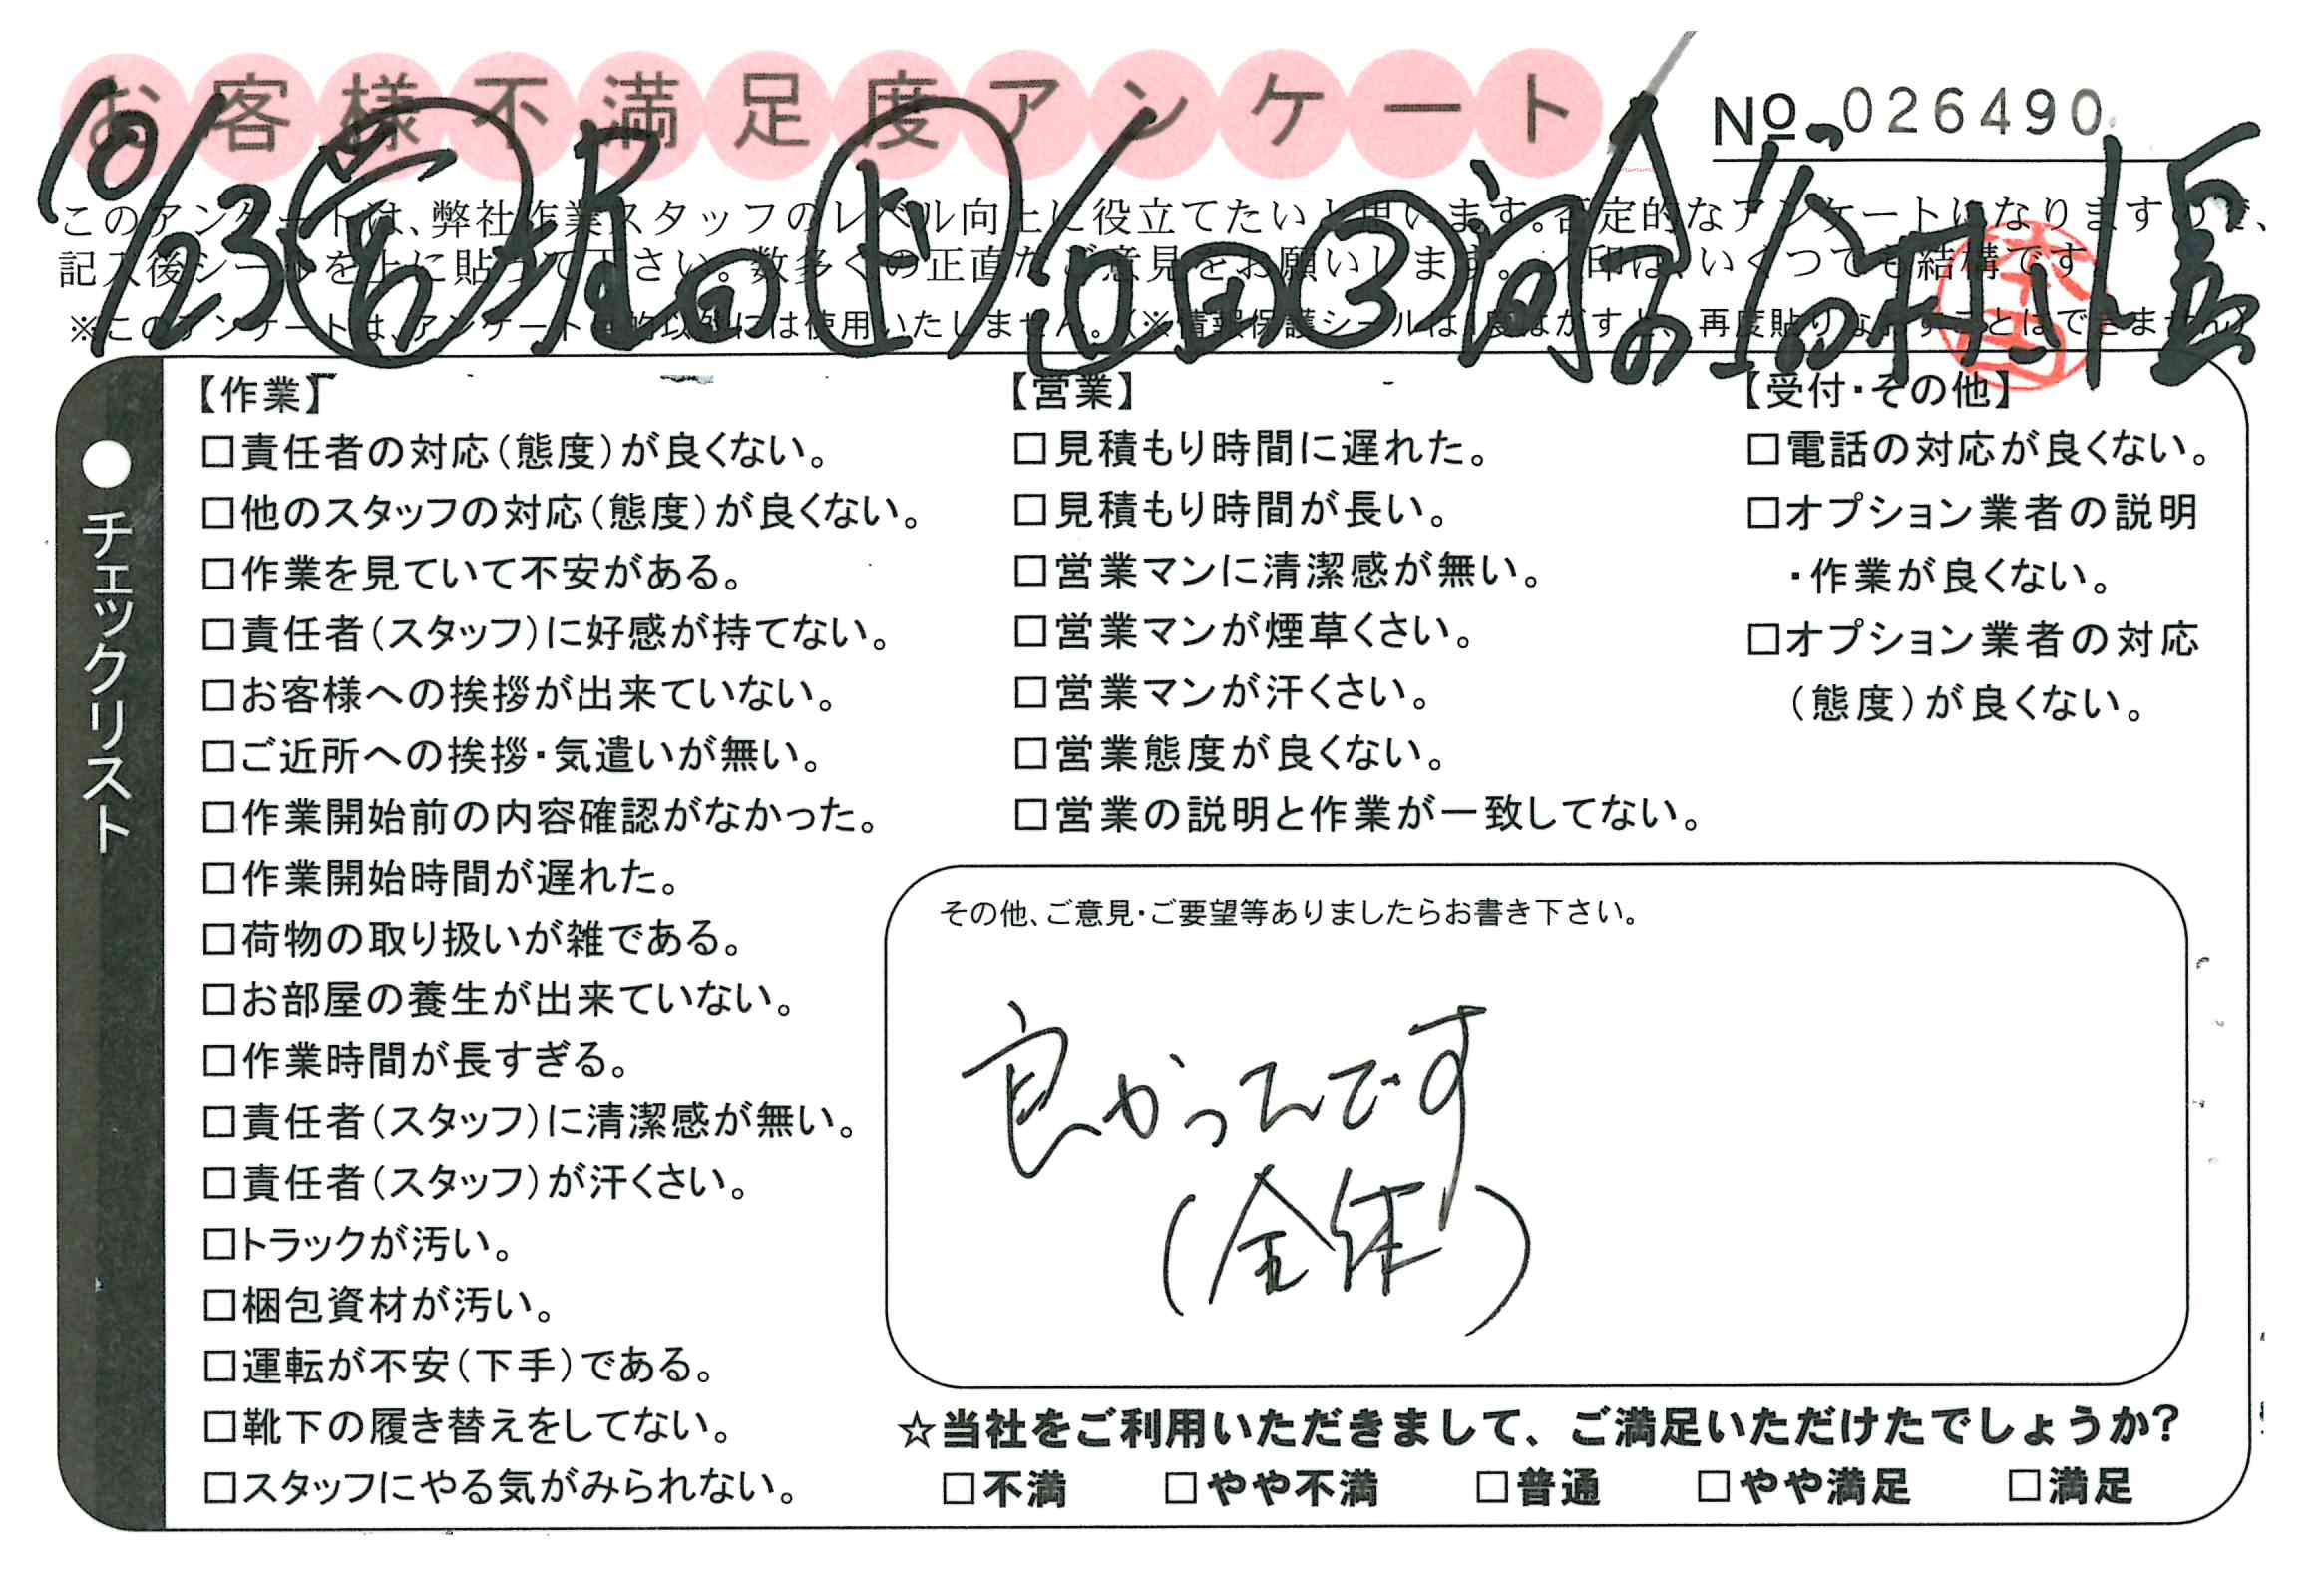 お客様不満足度アンケート
No. 026490
10/23
このアンケートは、弊社作業スタッフのレベル向上に役立てたいと思います。否定的なアンケートになりますので、
記入後シールを上に貼って下さい。数多くの正直なご意見をお願いします。✓印は、いくつでも結構です
※このアンケートは、アンケート目的以外には使用いたしません。(※情報保護シールは1度はがすと、再度貼りなおすことはできません)
●チェックリスト
【作業】
□責任者の対応(態度)が良くない。
□他のスタッフの対応(態度)が良くない。
□作業を見ていて不安がある。
□責任者(スタッフ)に好感が持てない。
□お客様への挨拶が出来ていない。
□ご近所への挨拶・気遣いが無い。
□作業開始前の内容確認がなかった。
□作業開始時間が遅れた。
□荷物の取り扱いが雑である。
□お部屋の養生が出来ていない。
□作業時間が長すぎる。
□責任者(スタッフ)に清潔感が無い。
□責任者(スタッフ)が汗くさい。
□トラックが汚い。
□梱包資材が汚い。
□運転が不安(下手)である。
□靴下の履き替えをしてない。
□スタッフにやる気がみられない。
【営業】
□見積もり時間に遅れた。
□見積もり時間が長い。
□営業マンに清潔感が無い。
□営業マンが煙草くさい。
□営業マンが汗くさい。
□営業態度が良くない。
□営業の説明と作業が一致してない。
【受付・その他】
□電話の対応が良くない。
□オプション業者の説明
・作業が良くない。
□オプション業者の対応
(態度)が良くない。
その他、ご意見・ご要望等ありましたらお書き下さい。
良かったです
(全体)
☆当社をご利用いただきまして、ご満足いただけたでしょうか?
□不満 □やや不満 □普通 □やや満足 □満足